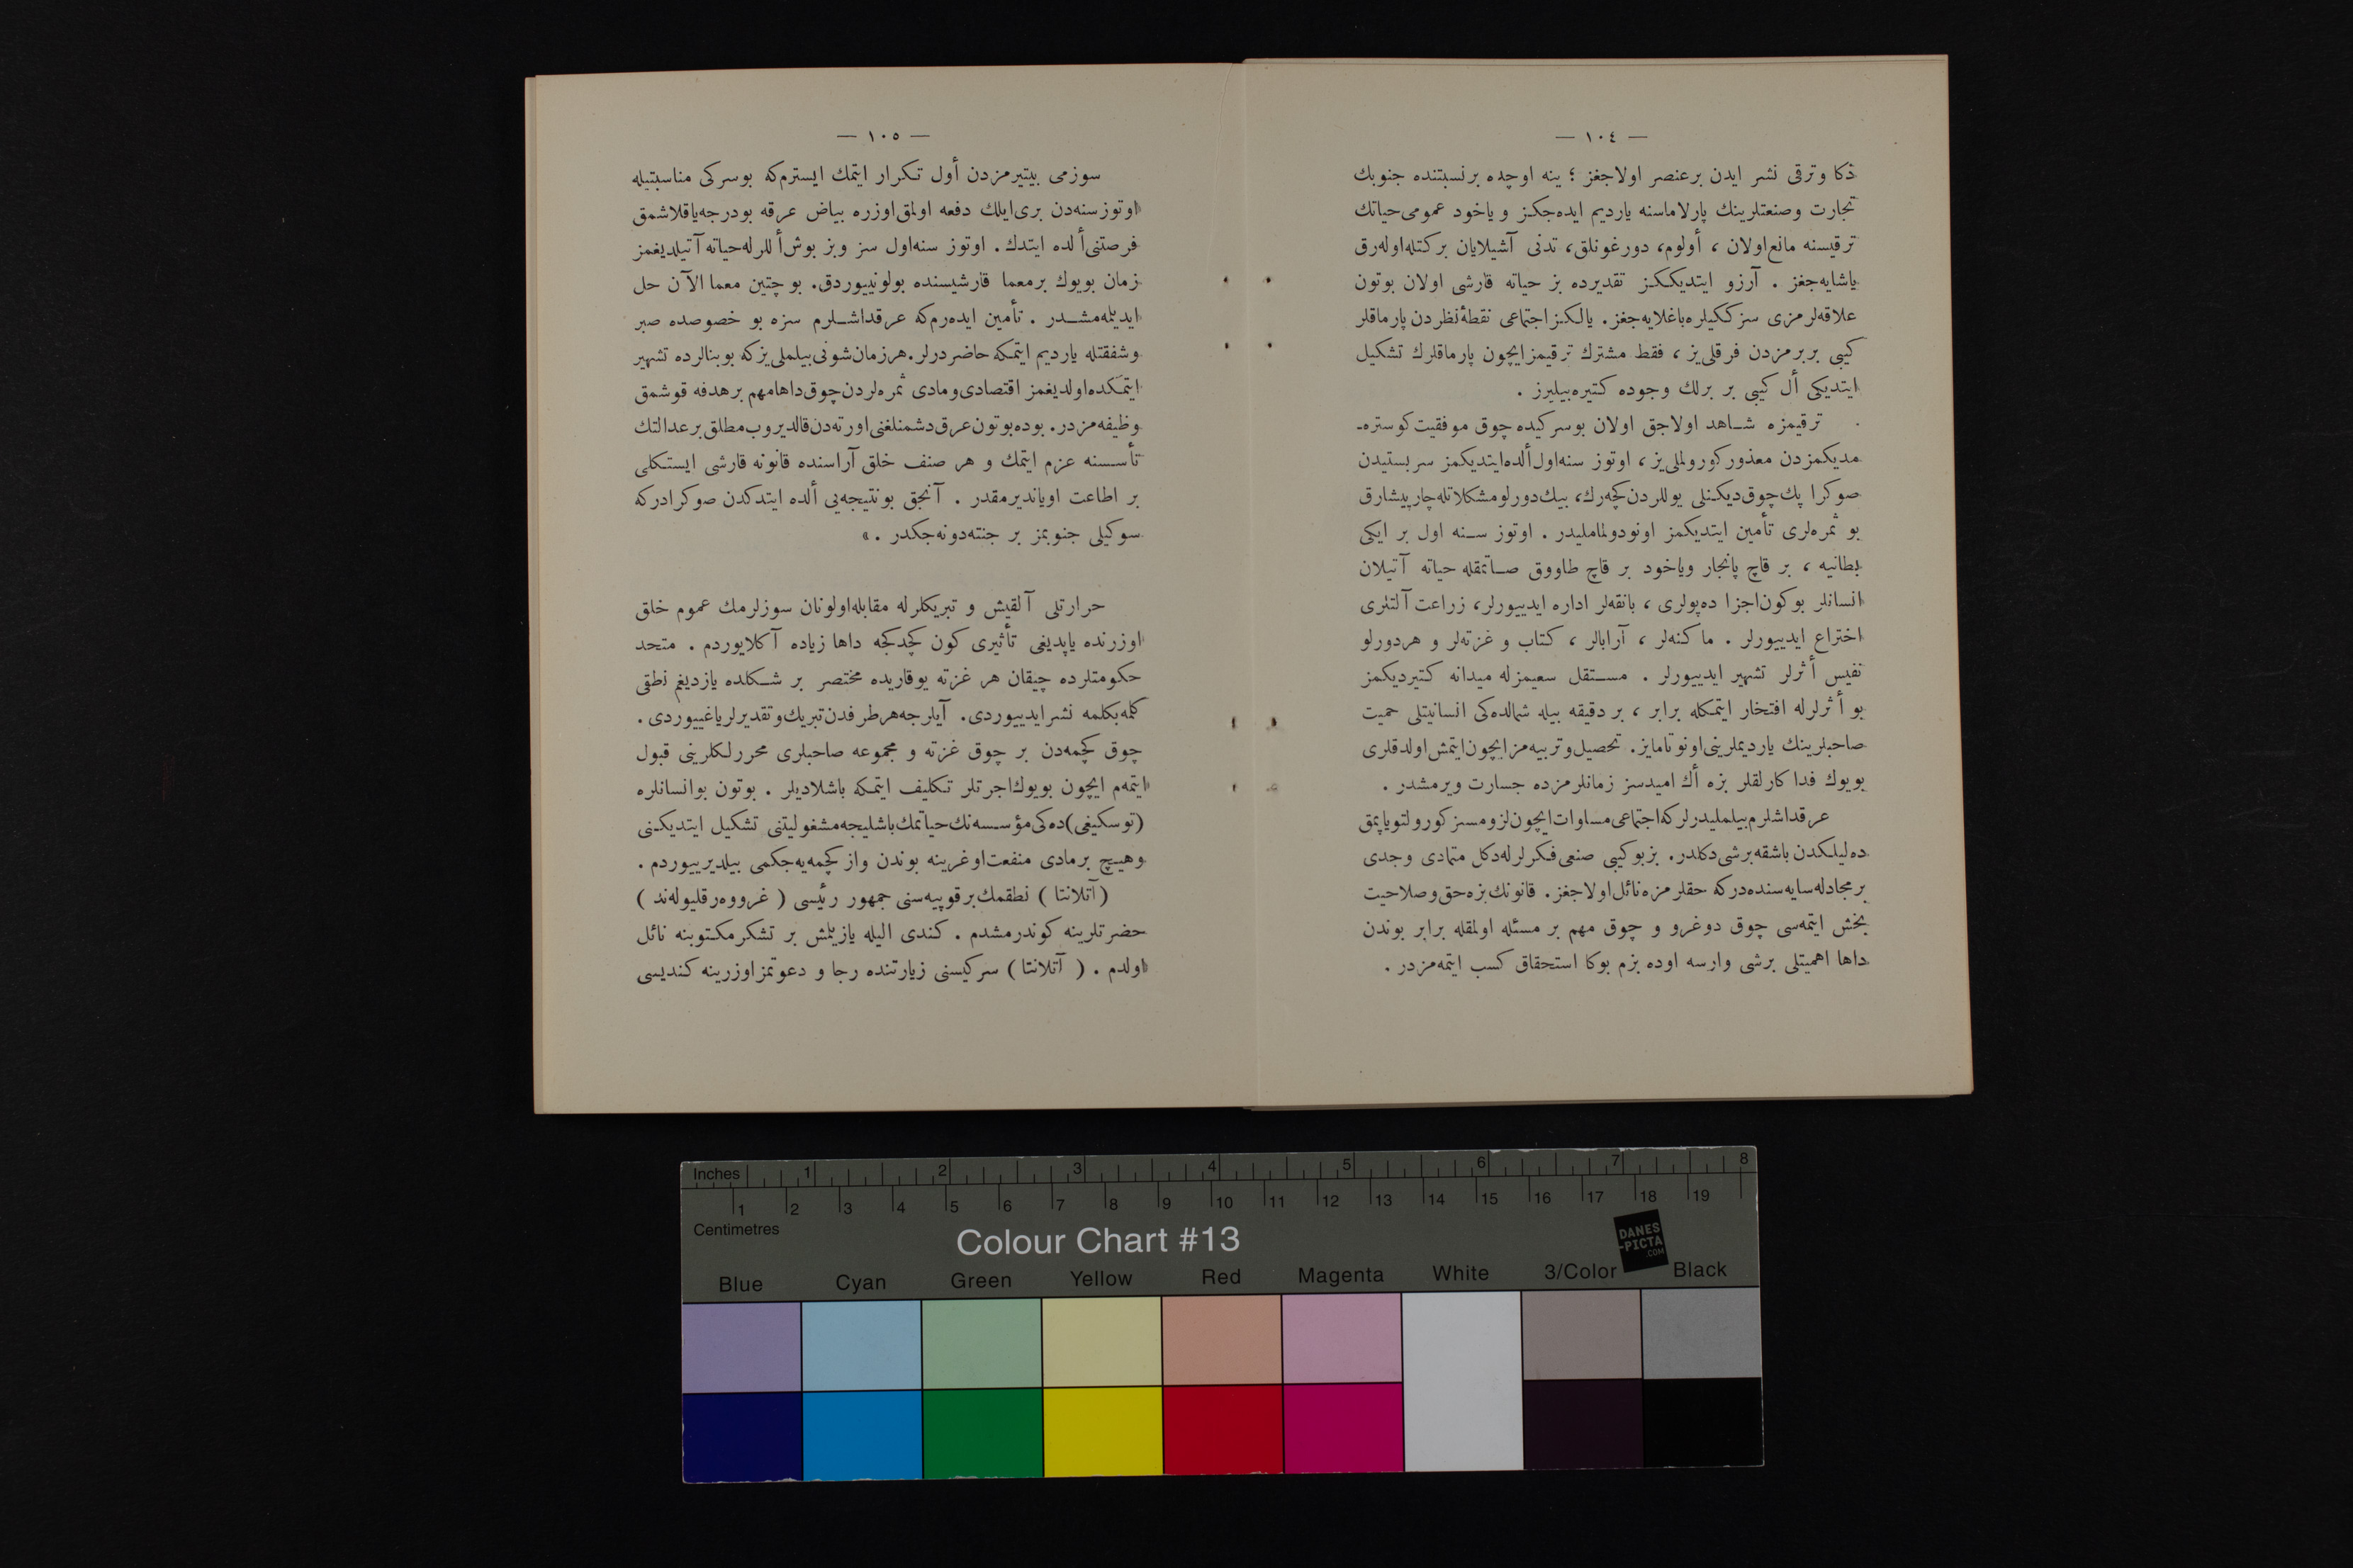 — ١٠٤ —
ذكا وترقی نشر ایدن برعنصر اولاجغز ؛ ینه اوچده برنسبتنده جنوبك
تجارت وصنعتلرینك پارلاماسنه یاردیم ایده‌جكز و یاخود عمومی حیاتك
ترقیسنه مانع اولان ، أولوم، دورغونلق، تدنی آشیلایان بركتله اوله‌رق
یاشایه‌جغز . آرزو ایتدیككز تقدیرده بز حیاته قارشی اولان بوتون
علاقه‌لرمزی سزككیلره باغلایه‌جغز. یالكز اجتماعی نقطهٔ نظردن پارماقلر
كیبی بربرمزدن فرقلی‌یز ، فقط مشترك ترقیمز ایچون پارماقلرك تشكیل
ایتدیكی أل كیبی بر برلك وجوده كتیره‌بیلیرز .
ترقیمزه شاهد اولاجق اولان بوسركیده چوق موفقیت كوستره‌ـ
مدیكمزدن معذور كورولملی‌یز ، اوتوز سنه‌اول ألده‌ایتدیكمز سربستیدن
صوكرا پك چوق دیكنلی یوللردن كچه‌رك، بیك دورلو مشكلاتله چارپیشارق
بو ثمره‌لری تأمین ایتدیكمز اونودولماملیدر . اوتوز سنه اول بر ایكی
بطانیه ، بر قاچ پانجار ویاخود بر قاچ طاووق صاتمقله حیاته آتیلان
انسانلر بوكون اجزا ده‌پولری ، بانقه‌لر اداره ایدییورلر، زراعت آلتلری
اختراع ایدییورلر . ماكنه‌لر ، آرابالر ، كتاب و غزته‌لر و هردورلو
نفیس أثرلر تشهیر ایدییورلر . مستقل سعیمزله میدانه كتیردیكمز
بو أثرلرله افتخار ایتمكله برابر ، بر دقیقه بیله شمالده‌كی انسانیتلی حمیت
صاحبلرینك یاردیملرینی اونوتامایز. تحصیل وتربیه‌مز ایچون ایتمش اولدقلری
بویوك فداكارلقلر بزه أك امیدسز زمانلرمزده جسارت ویرمشدر .
عرقداشلرم بیلملیدرلركه اجتماعی مساوات ایچون لزومسز كورولتو یاپمق
ده‌لیلكدن باشقه برشی دكلدر. بز بوكیبی صنعی فكرلرله دكل متمادی وجدی
بر مجادله سایه‌سنده‌دركه حقلرمزه نائل اولاجغز. قانونك بزه حق وصلاحیت
بخش ایتمه‌سی چوق دوغرو و چوق مهم بر مسئله اولمقله برابر بوندن
داها اهمیتلی برشی وارسه اوده بزم بوكا استحقاق كسب ایتمه‌مزدر .
— ١٠٥ —
سوزمی بیتیرمزدن أول تكرار ایتمك ایسترم‌كه بوسركی مناسبتیله
اوتوزسنه‌دن بری‌ایلك دفعه اولمق اوزره بیاض عرقه بودرجه یاقلاشمق
فرصتنی ألده ایتدك . اوتوز سنه‌اول سز وبز بوش أللرله حیاته آتیلدیغمز
زمان بویوك برمعما قارشیسنده بولونییوردق. بو چتین معما الآن حل
ایدیله‌مشدر . تأمین ایده‌رم‌كه عرقداشلرم سزه بو خصوصده صبر
وشفقتله یاردیم ایتمكه حاضردرلر. هرزمان شونی بیلملی‌یزكه بوبنالرده تشهیر
ایتمكده‌اولدیغمز اقتصادی ومادی ثمره‌لردن چوق داها مهم برهدفه قوشمق
وظیفه‌مزدر. بوده بوتون عرق دشمنلغنی اورته‌دن قالدیروب مطلق برعدالتك
تأسسنه عزم ایتمك و هر صنف خلق آراسنده قانونه قارشی ایستكلی
بر اطاعت اویاندیرمقدر . آنجق بونتیجه‌یی ألده ایتدكدن صوكرادركه
سوكیلی جنوبمز بر جنته‌دونه‌جكدر . »
حرارتلی آلقیش و تبریكلرله مقابله‌اولونان سوزلرمك عموم خلق
اوزرنده یاپدیغی تأثیری كون كچدكجه داها زیاده آكلایوردم . متحد
حكومتلرده چیقان هر غزته یوقاریده مختصر بر شكلده یازدیغم نطقی
كلمه‌بكلمه نشر ایدییوردی. آیلرجه هرطرفدن تبریك وتقدیرلر یاغییوردی .
چوق كچمه‌دن بر چوق غزته و مجموعه صاحبلری محررلكلرینی قبول
ایتمه‌م ایچون بویوك‌اجرتلر تكلیف ایتمكه باشلادیلر . بوتون بوانسانلره
(توسكیغی)ده‌كی مؤسسه‌نك حیاتمك باشلیجه مشغولیتنی تشكیل ایتدیكنی
وهیچ برمادی منفعت اوغرینه بوندن واز كچمه‌یه‌جكمی بیلدیرییوردم .
(آتلانتا) نطقمك برقوپیه‌سنی جمهور رئیسی (غرووه‌ر قلیوله‌ند)
حضرتلرینه كوندرمشدم . كندی الیله یازیلمش بر تشكر مكتوبنه نائل
اولدم . ( آتلانتا ) سركیسنی زیارتنده رجا و دعوتمز اوزرینه كندیسی
Inches 1 2 3 4 5 6 7 8
1 2 3 4 5 6 7 8 9 10 11 12 13 14 15 16 17 18 19
Centimetres
Colour Chart #13
DANES
-PICTA
.COM
Blue Cyan Green Yellow Red Magenta White 3/Color Black